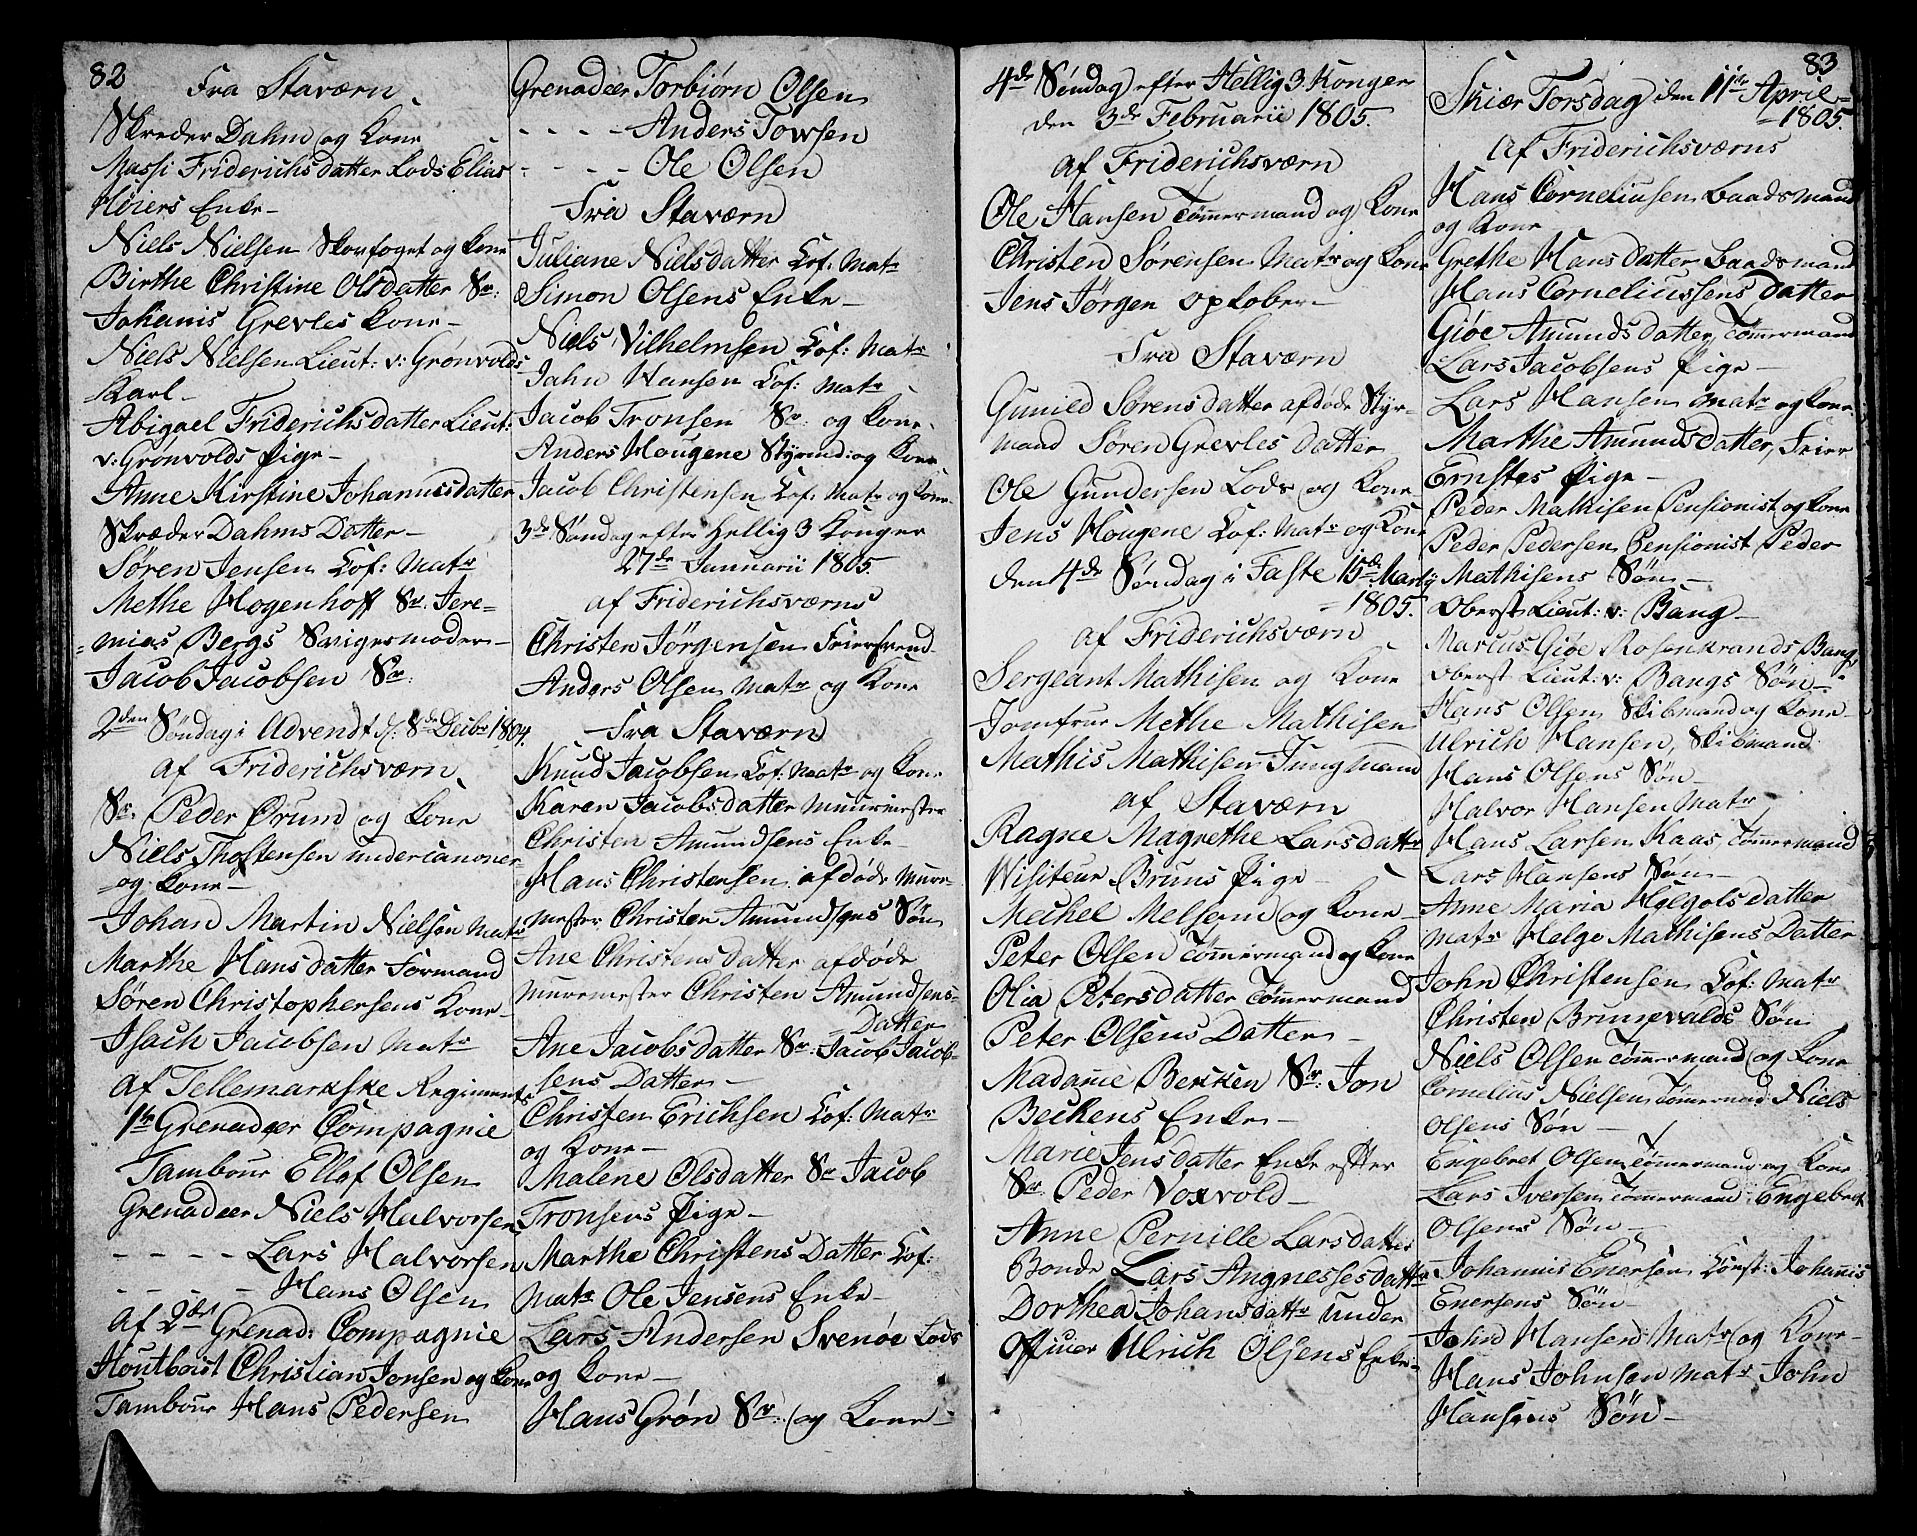 82
Fra Staværn
Skreder Dahm og Kone
Massi Friderichsdatter Lods Elias
Høiers Enke-
Niels Nielsen Skovfoget og Kone
Birthe Christine Olsdatter Sr.
Johanis Grevles Kone-
Niels Nielsen Lieut: v: Grønvolds
Karl-
Abigael Friderichsdatter Lieut:
v: Grønvolds Pige-
Anne Kirstine Johannisdatter
Skræder Dahms Datter-
Søren Jensen Cof: Matr
Methe Hogenhoff Sr. Jere=
=mias Bergs Svigermoder-
Jacob Jacobsen Sr:
2den Søndag i Advendt d: 8de Decbr 1804.
af Friderichsværn
Sr. Peder Ørund og Kone
Niels Thostensen undercanoner
=og Kone-
Johan Martin Nielsen Matr
Marthe Hansdatter Formand
Søren Christophersens Kone-
Isach Jacobsen Matr
af Tellemarkske Regiments
1te Grenadeer Compagnie
Tambour Ellef Olsen
Grenadeer Niels Halvorsen
- - - - Lars Halvorsen
- - - - - Hans Olsen
af 2det Grenad: Compagnie
Houtboist Christian Jonsen og Kone
Tambour Hans Pedersen
Grenadeer Torbiørn Olsen
- - - - Anders Towsen
- - - - Ole Olsen
Fra Staværn
Juliane Nielsdatter Cof: Matr
Simon Olsens Enke-
Niels Vilhelmsen Cof: Matr
Jahn Hansen Cof: Matr
Jacob Tronsen Sr: og Kone
Anders Hougene Styrmd: og Kone
Jacob Christensen Cof: Matr og Kone-
3de Søndag efter Hellig 3 Konger
27de Januarii 1805
af Friderichsværns
Christen Jörgensen Feiersvend
Anders Olsen Matr og Kone
Fra Staværn
Knud Jacobsen Cof: Matr og Kone
Karen Jacobsdatter Muurmester
Christen Amundsens Enke-
Hans Christensen afdøde Mure=
mester Christen Amundsens Søn
Ane Christensdatter afdøde
Muremester Christen Amundsens-
=Datter
Ane Jacobsdatter Sr: Jacob Jacob=
sens Datter-
Christen Erichsen Cof: Matr
og Kone-
Malene Olsdatter Sr Jacob
Tronsens Pige-
Marthe Christens Datter Cof:
Matr Ole Jensens Enke-
Lars Andersen Svenøe Lods
og Kone-
Hans Grøn Sr: og Kone-
4de Søndag efter Hellig 3 Konger
den 3de Februarii 1805.
af Friderichsværn
Ole Hansen Tømmermand og Kone
Christen Sørensen Matr og Kone
Jens Jörgen Optober-
Fra Staværn
Gunild Sørensdatter afdøde Styr=
mand Søren Grevles Datter
Ole Gundersen Lods og Kone-
Jens Hougene Cof: Matr og Kone
den 4de Søndag i Faste 15de Marty
=1805.
af Friderichsværn
Sergeant Mathisen og Kone
Jomfrue Methe Mathisen
Mathis Mathisen Jungmand
af Staværn
Ragne Magrethe Larsdattr
Wisiteur Bruns Pige-
Mechel og Kone-
Peter Olsen Tømmermand og Kone
Olia Petersdatter Tømmermand
Peter Olsens Datter-
Madame Becken Sr: Jon
Beckens Enke-
Marie Jensdatter Enke efter
Sr. Peder Voxvold-
Anne Pernille Larsdatter
Bonde Lars Angnessesdattr
Dorthea Johansdattr under
Officeer Ulrich Olsens Enke-
83
Skiær Torsdag den 11te April
=1805.
af Friderichsværns
Hans Corneliusen Baadsmand
og Kone
Grethe Hansdatter Baadsmand
Hans Corneliussens Datter
Giøe Amundsdatter Tømmermand
Lars Jacobsens Pige-
Lars Hansen Matr og Kone
Marthe Amundsdatter, Feier
Ernstes Pige-
Peder Mathisen Pensionist og Kone
Peder Pedersen Pensionist Peder
Mathisens Søn-
Oberst Lieut: v: Bang-
Marcus Giøe Rosenkrands Bang,
Oberst Lieut: v: Bangs Søn-
Hans Olsen Skibmand og Kone-
Ulrich Hansen, Skibmand
Hans Olsens Søn-
Halvor Hansen Matr
Hans Larsen Kaas, Tømmermand
Lars Hansens Søn-
Anne Maria Helgolsdatter
Matr Helge Mathisens Datter
John Christensen Cof: Matr
Christen Brunsvalds Søn
Niels Olsen Tømmermand og Kone
Cornelius Nielsen Tømmermand Niels
Olsens Søn-
Engebret Olsen Tømmermand og Kone
Lars Iversen Tømmermand Engebret
Olsens Søn-
Johannis Enersen Const: Johanis
Enersens Søn-
John Hansen Matr og Kone-
Hans Johnsen Matr John
Hansens Søn-